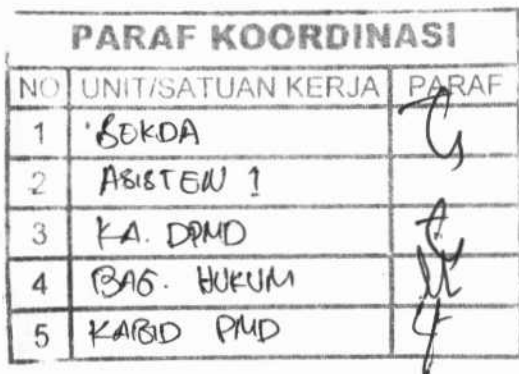 PARAF KOORDINASI
NO UNIT/SATUAN KERJA PARAF
1 SEKDA
2 ASISTEN 1
3 KA. DPMD
4 BAG. HUKUM
5 KABID PMD